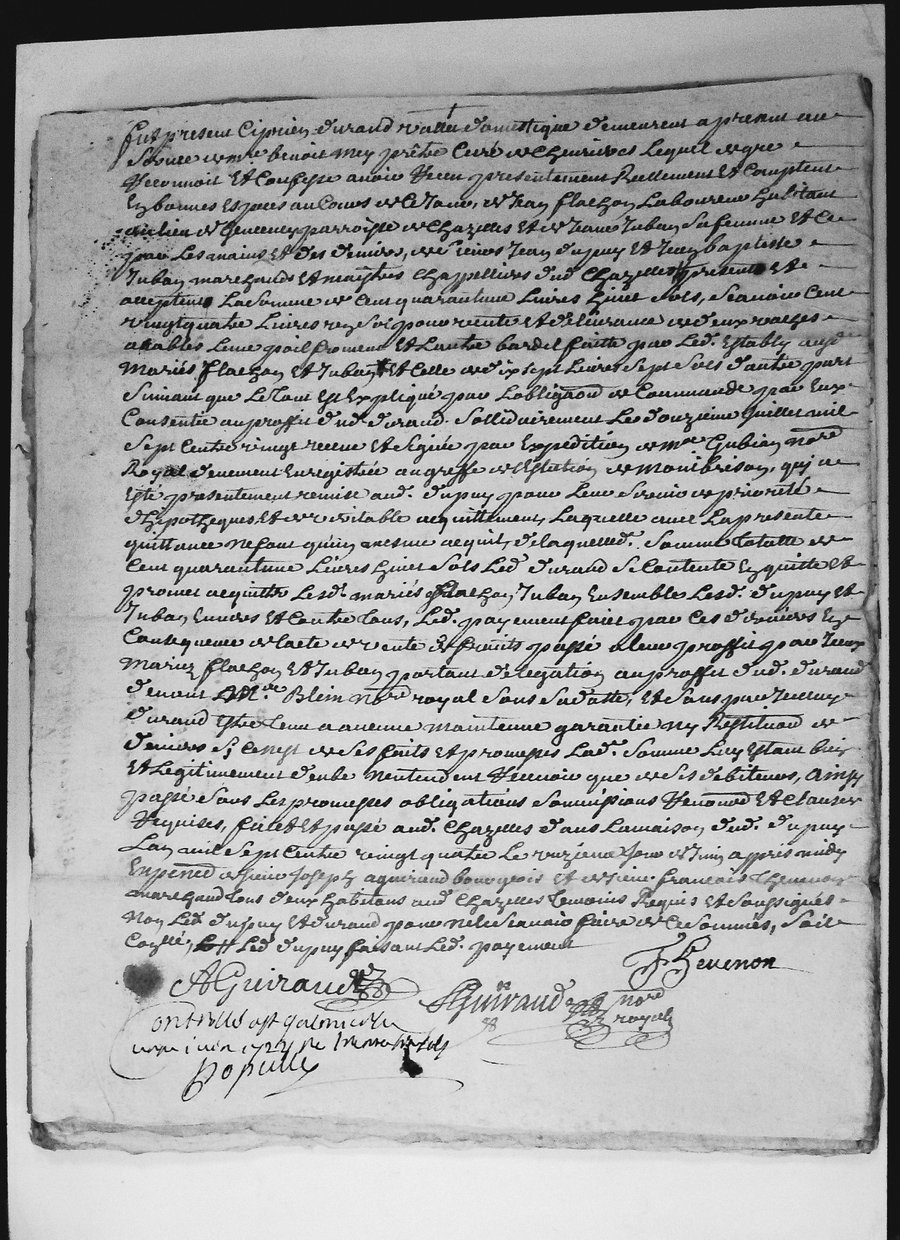 fut present Ciprien durand vallet domestique demeurent a present au
service de mre benoit Mey prêtre Curé de Chenrieres Lequel de gre
Reconnoit Et Confesse avoir Receu presentement Reellement Et Comptent
En bonnes Especes au Cours de Ce Jour, de Jean flachon Laboureur habitant
au lieu de parroisse de Chazelles Et de Jeanne Juban sa femme Et Ce
par Les mains Et des deniers, de sieurs Jean dupuy Et Jean baptiste
Juban marchands Et maistres Chappelliers dud Chazelles presents Et
acceptents La somme de Cent quarantune Livres huict sols, scavoir Cent
vingt quatre Livres un sol pour vente Et delivrance de deux vaches
a Lune poil froment Et Lautre bardel faitte par Led. Estably auxd
Mariés flachon et Juban Et Celle de dix sept Livres sept sols dautre part
Suivant que Le tout Est Expliqué par Lobligaon de Commande par Eux
Consentie au proffit dud. durand. Sollidairement Le douzieme Juillet mil
Sept Centz vingt Receue Et Signée par Expedition de Me Gubian Nore
Royal duement Enregistrée au greffe de LEslection de Montbrison, qui a
Esté presentement remise aud. dupuy pour Leur Servir de priorité
dhipotheques Et de veritable acquittement, Laquelle avec La presente
quittance ne font quun mesme acquit, de laquelled. Somme totalle de
Cent quarantune Livres huict Sols Led. durand Se Contente En quitte Et
promet acquitter Lesd. mariés flachon Juban Ensemble Lesd. dupuy Et
Juban Envers Et Contre tous, Led. payement faict par Ces derniers En
Consequence de Lacte de vente de fruits passé a leur proffit par Iceux
Mariez flachon Et Juban portant delegation au proffit dud. durand
devant Me Blein Nore royal Sous Sa datte, Et Sans que Iceluy
durand Leur Maintenue garantie Ny Restituon de
deniers Si Cenest de Ses faits Et promesses Lad. Somme Luy Estant bien
Et Legitimement deube Nentendent Recevoir que de Ses debiteurs, Ainsy
passé Sous Les promesses obligations Soumissions Renonons Et Clauses
Requises, fait Et passé aud. Chazelles dans La maison dud. dupuy
Lan mil Sept Centz vingt quatre Le unzieme Jour de Juin appres midy
En presence de Sieur Joseph aguiraud bourgeois Et de Sieur francois Thevenon
marchand tous deux habitans aud Chazelles temoins Requis Et Soussignés
Non Led. dupuy Et durand pour ne le Scavoir faire de Ce Sommés, Soit
Led dupuy faisant Led. payement
F Thevenon
AGuiraud
JGuiraud nore
royal
Controllé a St galmier le
unze juin 1724
populle